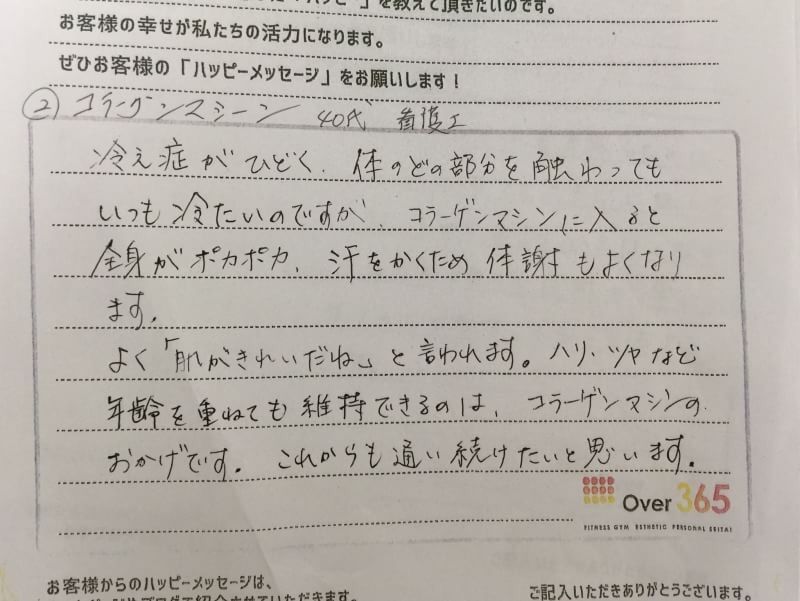 ハッピー」を教えて頂きたいのです。
お客様の幸せが私たちの活力になります。
ぜひお客様の「ハッピーメッセージ」をお願いします！
② コラーゲンマシーン 40代 看護士
冷え症がひどく、体のどの部分を触わっても
いつも冷たいのですが、コラーゲンマシンに入ると
全身がポカポカ、汗をかくため体謝もよくなり
ます。
よく「肌がきれいだね」と言われます。ハリ・ツヤなど
年齢を重ねても維持できるのは、コラーゲンマシンの
おかげです。これからも通い続けたいと思います。
Over 365
FITNESS GYM ESTHETIC PERSONAL SEITAI
お客様からのハッピーメッセージは、
ご記入いただきありがとうございます。